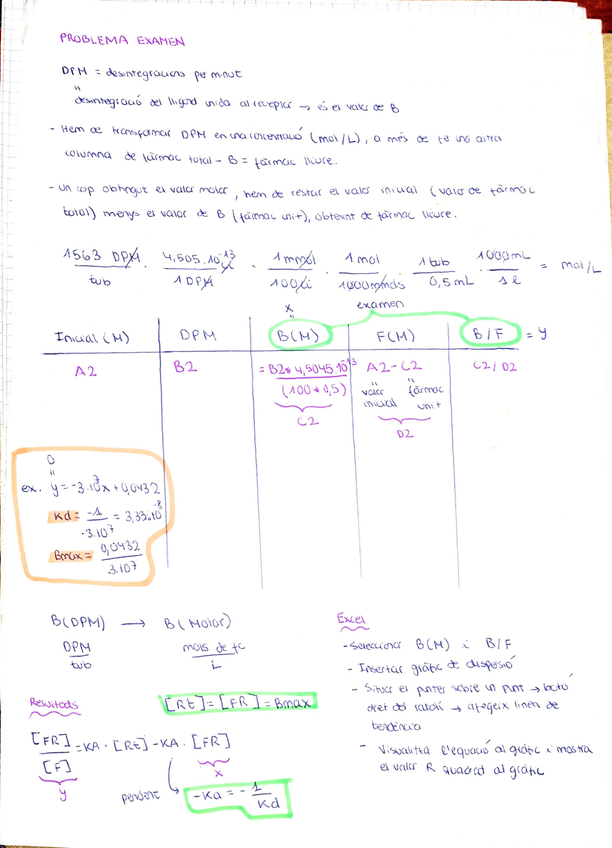 PROBLEMA EXAMEN
DPM = desintegracions per minut
"
desintegració del lligand unida al receptor → és el valor de B
- Hem de transformar DPM en una concentració (mol/L), a més de fe una altra
columna de fàrmac total - B = fàrmac lliure.
- Un cop obtingut el valor molar, hem de restar el valor inicial (valor de fàrmac
total) menys el valor de B (fàrmac unit), obtenint de fàrmac lliure.
1563 DPM/tub · 4,505·10^-13 Ci/1 DPM · 1 mmol/100 Ci · 1 mol/1000 mmols · 1 tub/0,5 mL · 1000 mL/1 l = mol/L
x examen
Inicial (M) DPM B(M) F(M) B/F = y
A2 B2 = B2* 4,5045·10^-13 / (100*0,5) A2-C2 C2/D2
" "
valor fàrmac
inicial unit
C2 D2
0
"
ex. y = -3·10^7x + 0,0432
Kd = -1/-3·10^7 = 3,33·10^-8
Bmax = 0,0432/3·10^7
B(DPM) → B(Molar)
DPM/tub mols de fc/L
Resultats
[Rt] = [FR] = Bmax
[FR]/[F] = KA · [Rt] - KA · [FR]
y x
pendent → -Ka = -1/Kd
Excel
- Seleccionar B(M) i B/F
- Insertar gràfic de dispersió
- Situar el punter sobre un punt → botó
dret del ratolí → afegeix línea de
tendència
- Visualitza l'equació al gràfic i mostra
el valor R quadrat al gràfic